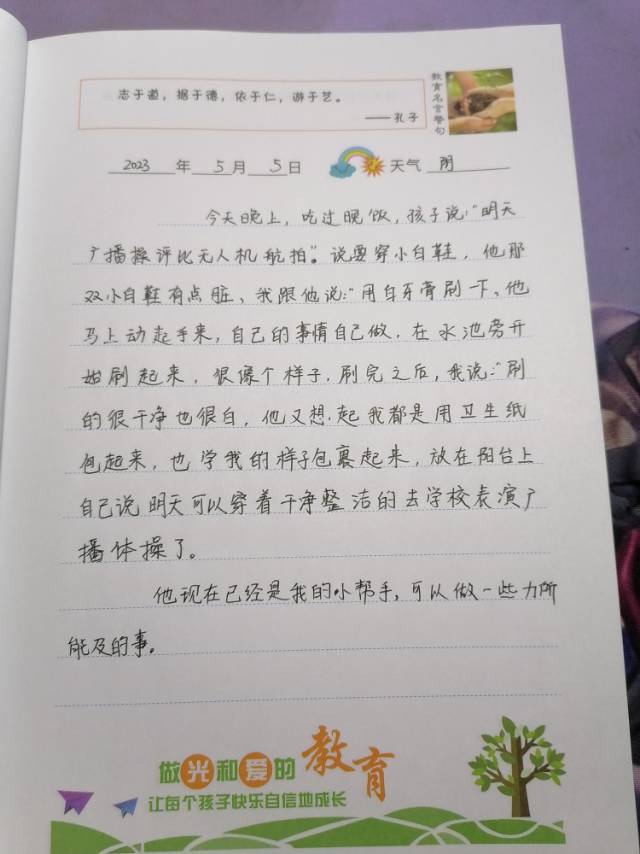 志于道，据于德，依于仁，游于艺。
——孔子
教育名言警句
2023 年 5 月 5 日 天气 阴
今天晚上，吃过晚饭，孩子说:"明天
广播操评比无人机航拍"。说要穿小白鞋，他那
双小白鞋有点脏、我跟他说:"用白牙膏刷一下、他
马上动起手来，自己的事情自己做，在水池旁开
始刷起来，很像个样子，刷完之后，我说:"刷
的很干净也很白，他又想起我都是用卫生纸
包起来，也学我的样子包裹起来，放在阳台上
自己说明天可以穿着干净整洁的去学校表演广
播体操了。
他现在已经是我的小帮手，可以做一些力所
能及的事。
做光和爱的教育
让每个孩子快乐自信地成长